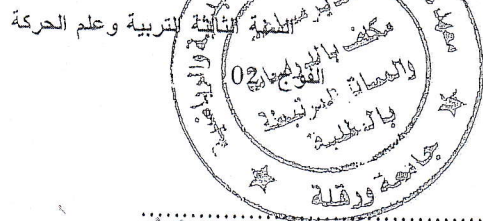 السنة الثالثة للتربية وعلم الحركة
الفوج 02
مكلف بالدراسات
والمسائل المرتبطة
بالطلبة
جامعة ورقلة